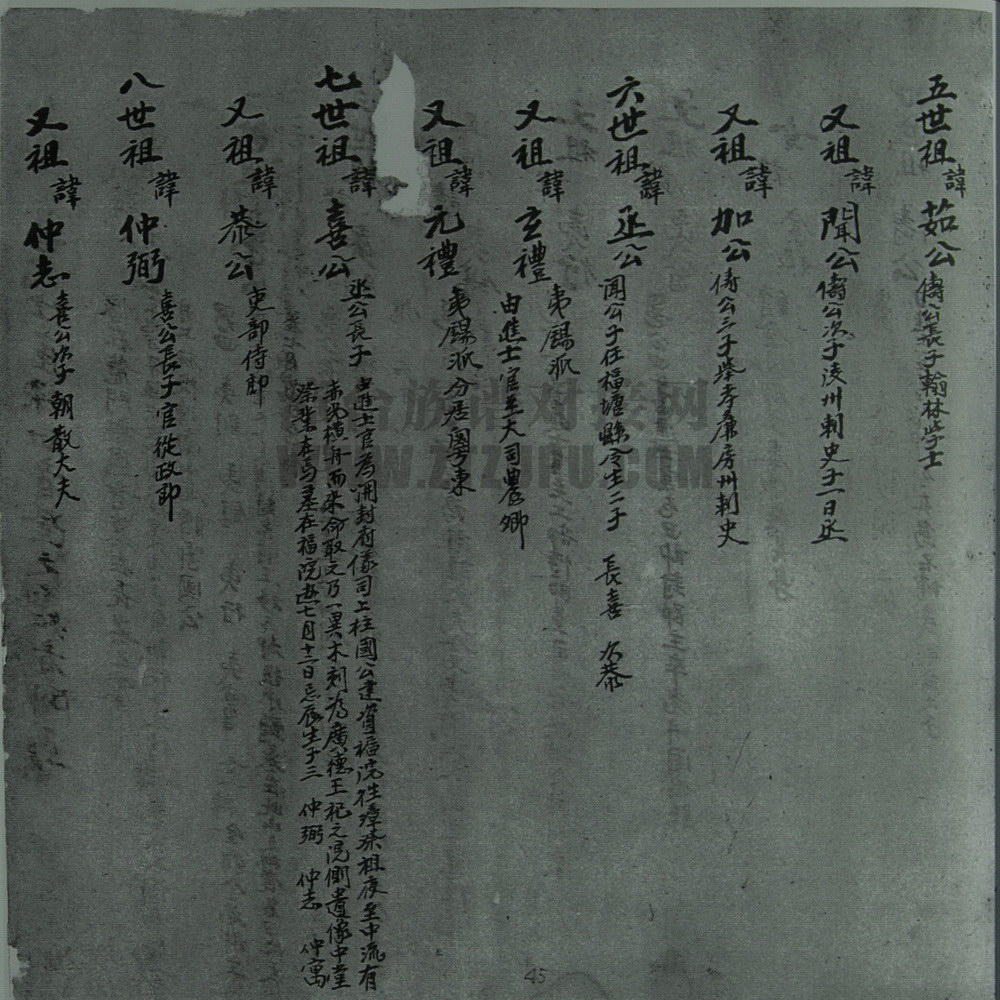 五世祖諱茹公 儔公長子翰林學士
又祖諱聞公 儔公次子凌州刺史子一曰丞
又祖諱加公 儔公三子舉孝廉房州刺史
六世祖諱丞公 聞公子任福塘縣令生二子 長喜 次恭
又祖諱玄禮 夷賜派
由進士官至大司農卿
又祖諱元禮 夷賜派分居粵東
七世祖諱喜公 丞公長子 由進士官為開封府儀司上柱國公建資福院往漳祭祖夜至中流有
赤光橫舟而來命取之乃一異木刻為廣德王祀之院側遺像中堂
柴集在焉墓在福院 七月十二日忌辰生子三 仲弼 仲志 仲寓
又祖諱恭公 吏部侍郎
八世祖諱仲弼 喜公長子官從政郎
又祖諱仲志 喜公次子朝散大夫
合族谱对接网
WWW.ZJZUPU.COM
45